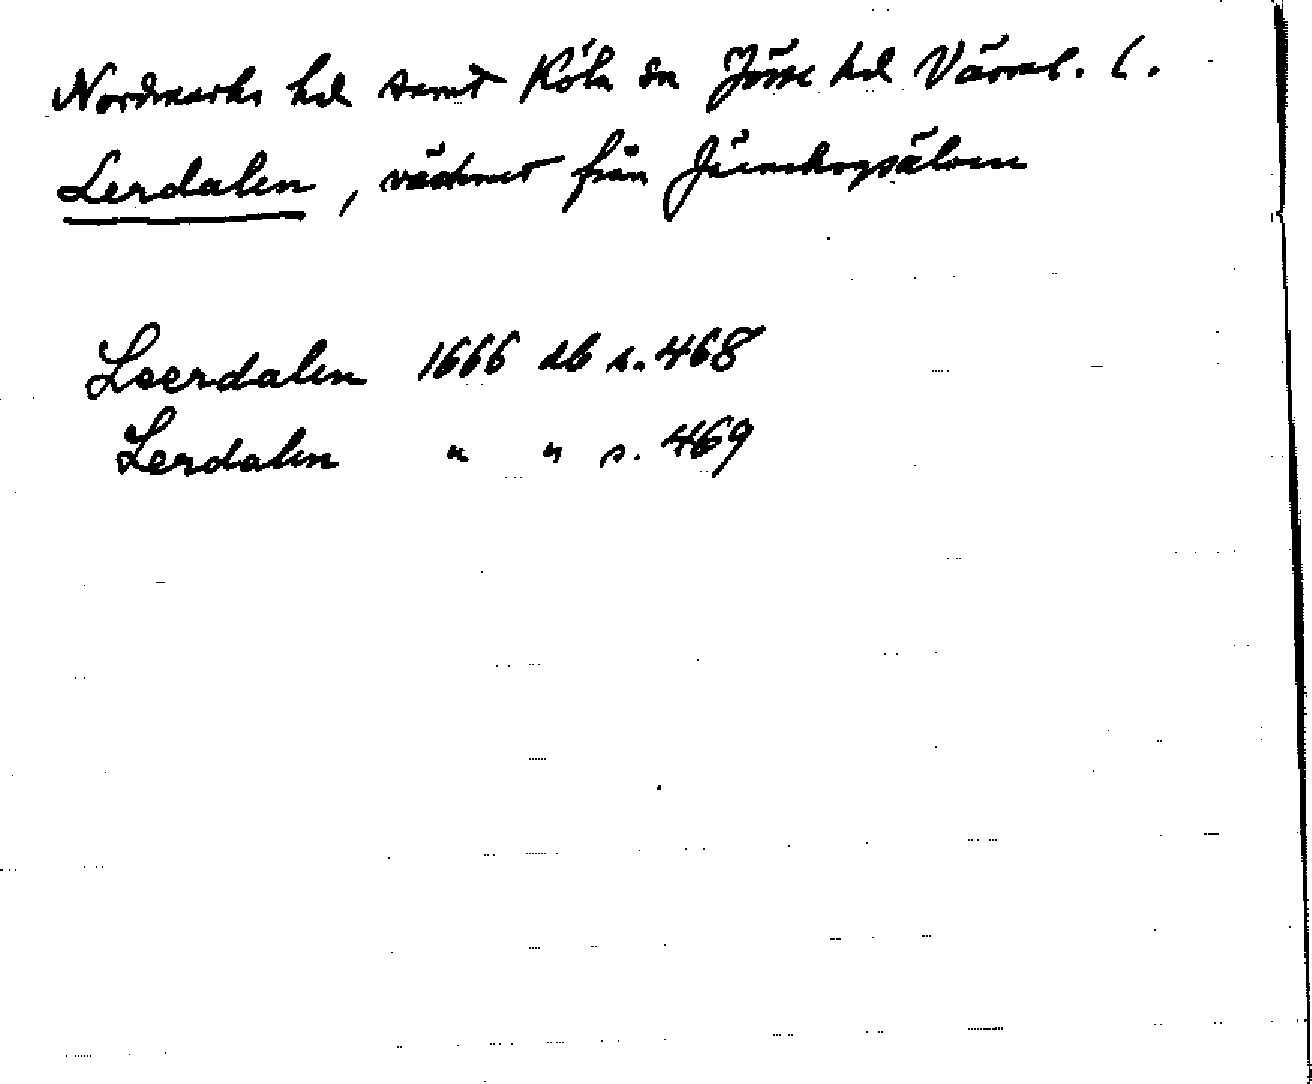 Nordmarks hd samt Köla sn Jösse hd Värml. l.
Lerdalen, vädnet från Järnskogsälven
Leerdalen 1666 db s. 468
Lerdalen " " s. 469